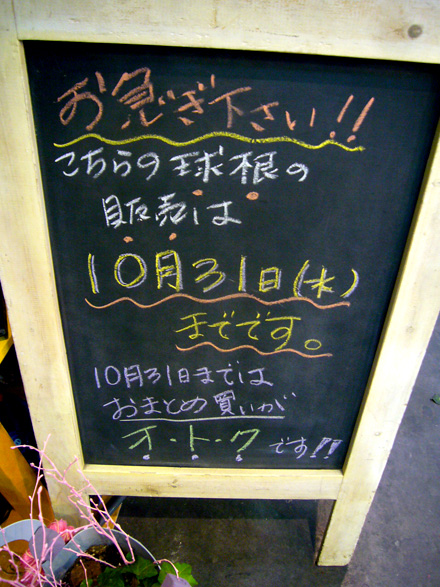 お急ぎ下さい!!
こちらの球根の
販売は
10月31日(水)
までです。
10月31日までは
おまとめ買いが
オ・ト・クです!!